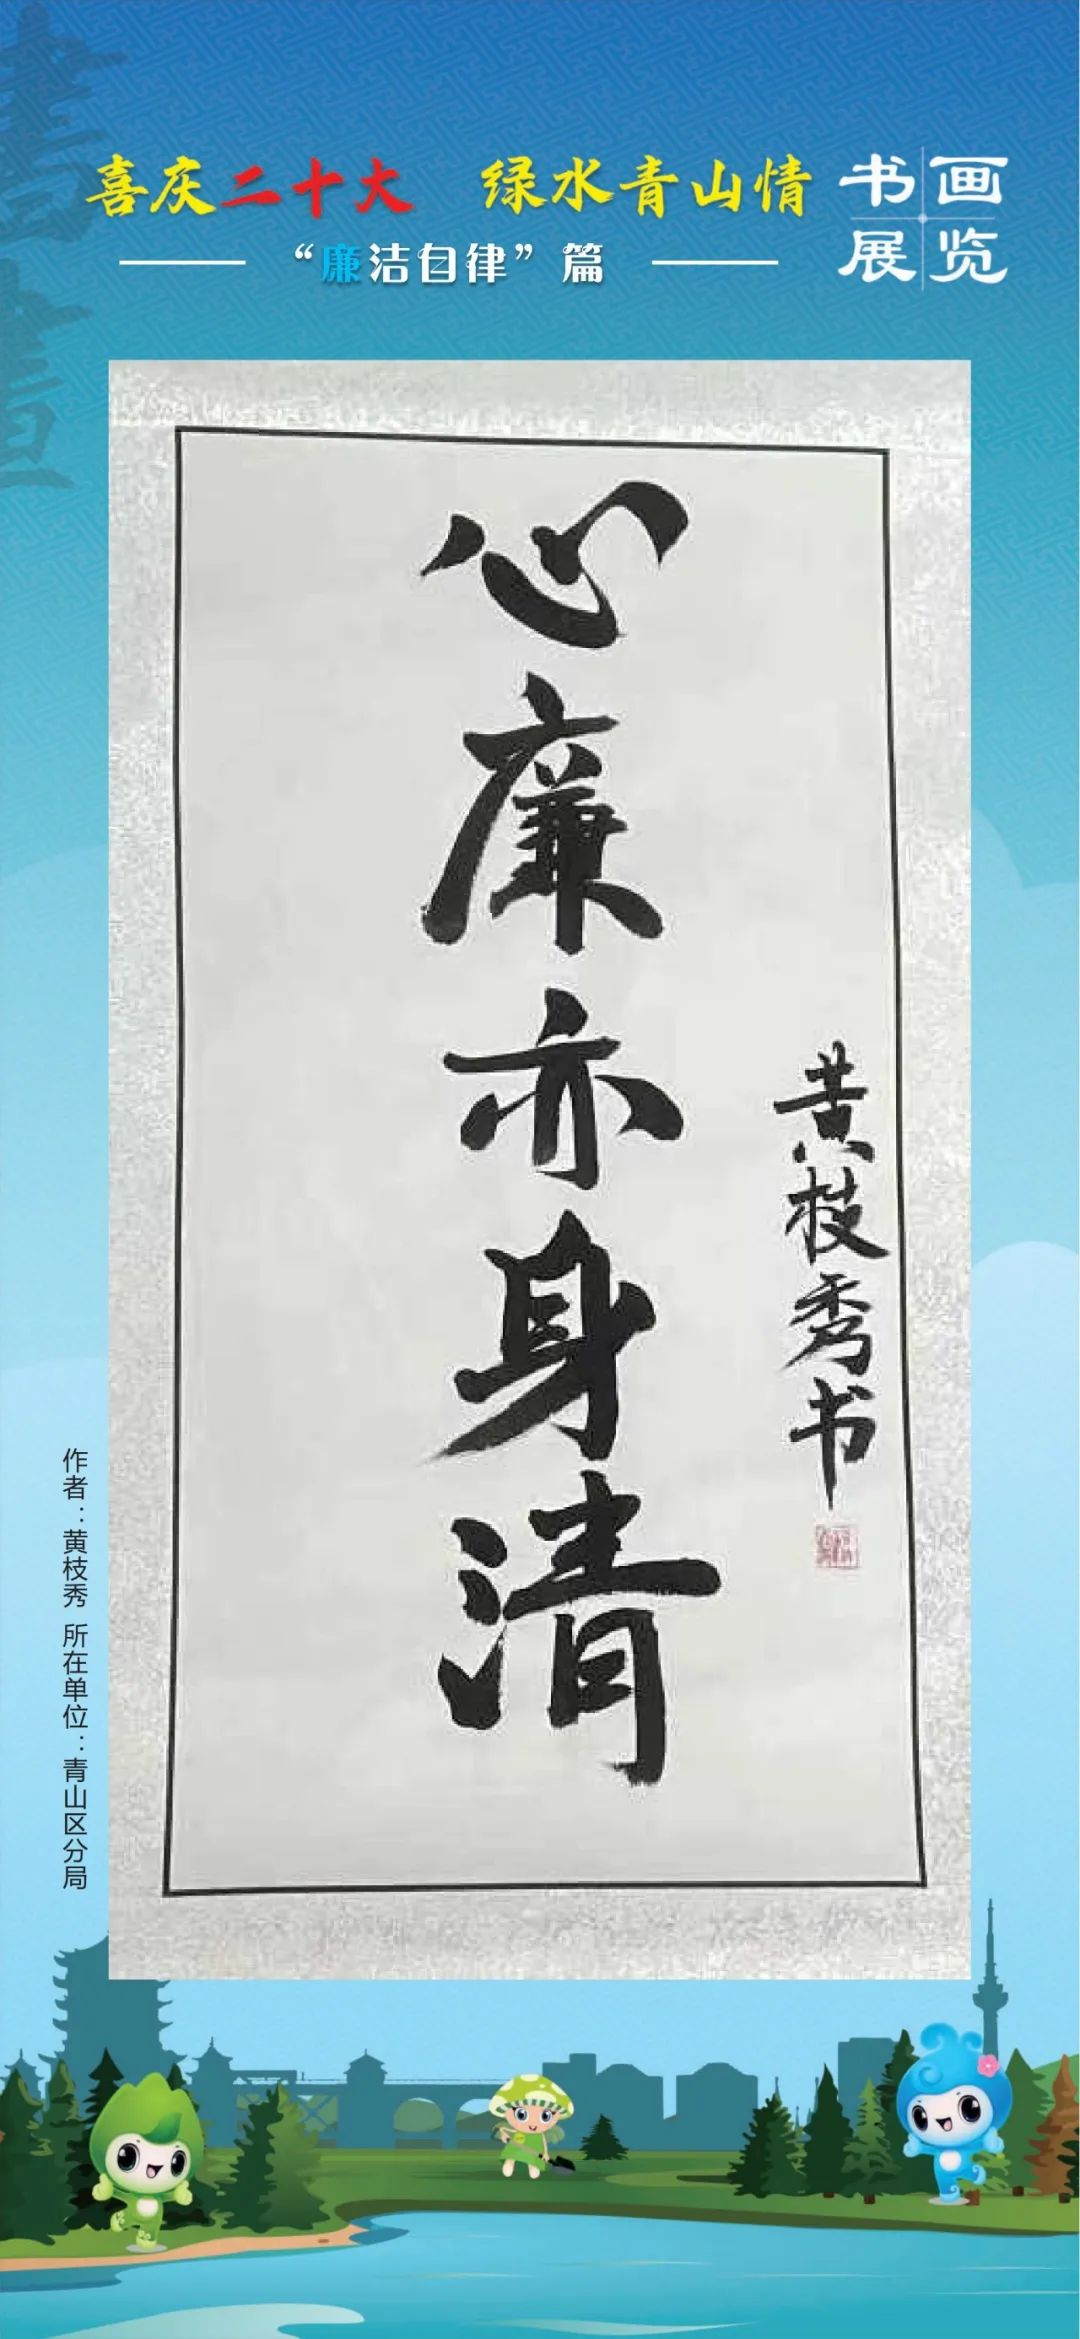 喜庆二十大 绿水青山情
书画展览
“廉洁自律”篇
心廉亦身清
黄枝秀书
作者：黄枝秀 所在单位：青山区分局
書畫